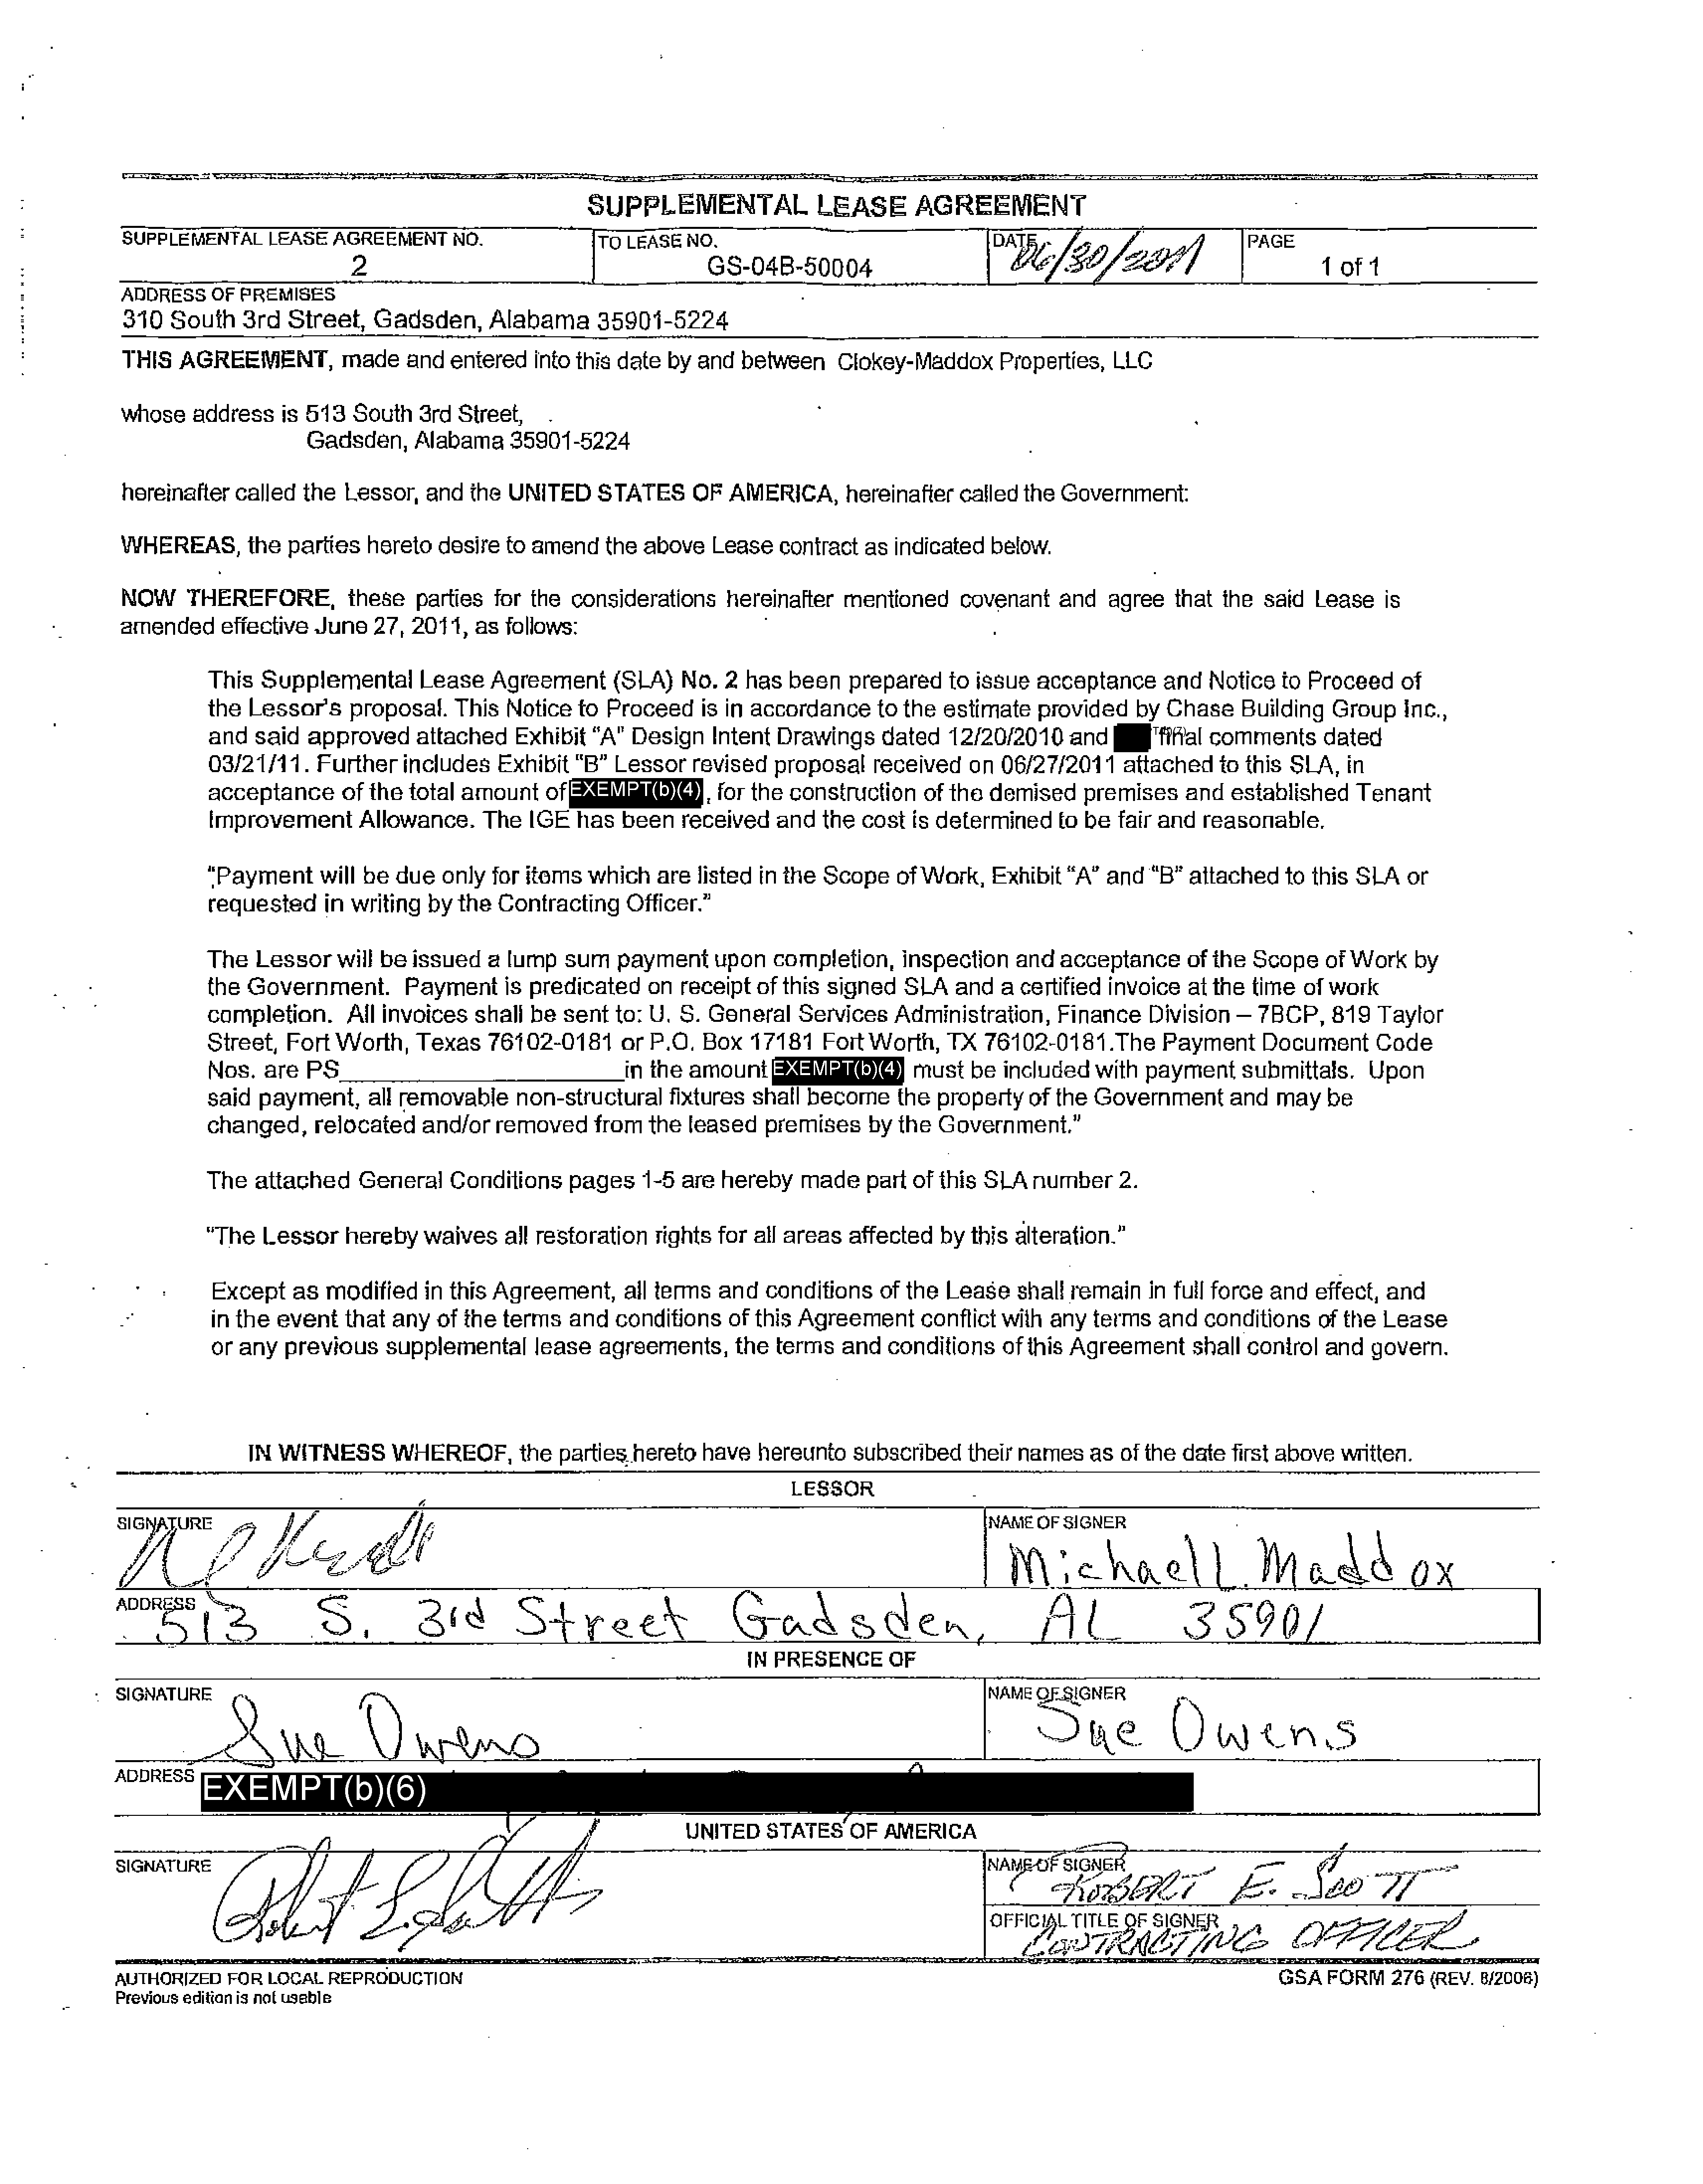 SUPPLEMENTAL LEASE AGREEMENT
SUPPLEMENTAL LEASE AGREEMENT NO.
2
TO LEASE NO.
GS-04B-50004
DATE
06/30/2011
PAGE
1 of 1
ADDRESS OF PREMISES
310 South 3rd Street, Gadsden, Alabama 35901-5224
THIS AGREEMENT, made and entered into this date by and between Clokey-Maddox Properties, LLC
whose address is 513 South 3rd Street,
Gadsden, Alabama 35901-5224
hereinafter called the Lessor, and the UNITED STATES OF AMERICA, hereinafter called the Government:
WHEREAS, the parties hereto desire to amend the above Lease contract as indicated below.
NOW THEREFORE, these parties for the considerations hereinafter mentioned covenant and agree that the said Lease is
amended effective June 27, 2011, as follows:
This Supplemental Lease Agreement (SLA) No. 2 has been prepared to issue acceptance and Notice to Proceed of
the Lessor's proposal. This Notice to Proceed is in accordance to the estimate provided by Chase Building Group Inc.,
and said approved attached Exhibit "A" Design Intent Drawings dated 12/20/2010 and final comments dated
03/21/11. Further includes Exhibit "B" Lessor revised proposal received on 06/27/2011 attached to this SLA, in
acceptance of the total amount of EXEMPT(b)(4), for the construction of the demised premises and established Tenant
Improvement Allowance. The IGE has been received and the cost is determined to be fair and reasonable.
"Payment will be due only for items which are listed in the Scope of Work, Exhibit "A" and "B" attached to this SLA or
requested in writing by the Contracting Officer."
The Lessor will be issued a lump sum payment upon completion, inspection and acceptance of the Scope of Work by
the Government. Payment is predicated on receipt of this signed SLA and a certified invoice at the time of work
completion. All invoices shall be sent to: U. S. General Services Administration, Finance Division – 7BCP, 819 Taylor
Street, Fort Worth, Texas 76102-0181 or P.O. Box 17181 Fort Worth, TX 76102-0181.The Payment Document Code
Nos. are PS____________________in the amount EXEMPT(b)(4) must be included with payment submittals. Upon
said payment, all removable non-structural fixtures shall become the property of the Government and may be
changed, relocated and/or removed from the leased premises by the Government."
The attached General Conditions pages 1-5 are hereby made part of this SLA number 2.
"The Lessor hereby waives all restoration rights for all areas affected by this alteration."
Except as modified in this Agreement, all terms and conditions of the Lease shall remain in full force and effect, and
in the event that any of the terms and conditions of this Agreement conflict with any terms and conditions of the Lease
or any previous supplemental lease agreements, the terms and conditions of this Agreement shall control and govern.
IN WITNESS WHEREOF, the parties hereto have hereunto subscribed their names as of the date first above written.
LESSOR
SIGNATURE
NAME OF SIGNER
Michael L. Maddox
ADDRESS
513 S. 3rd Street Gadsden, AL 35901
IN PRESENCE OF
SIGNATURE
Sue Owens
NAME OF SIGNER
Sue Owens
ADDRESS
EXEMPT(b)(6)
UNITED STATES OF AMERICA
SIGNATURE
NAME OF SIGNER
ROBERT E. SCOTT
OFFICIAL TITLE OF SIGNER
CONTRACTING OFFICER
AUTHORIZED FOR LOCAL REPRODUCTION
Previous edition is not usable
GSA FORM 276 (REV. 8/2006)